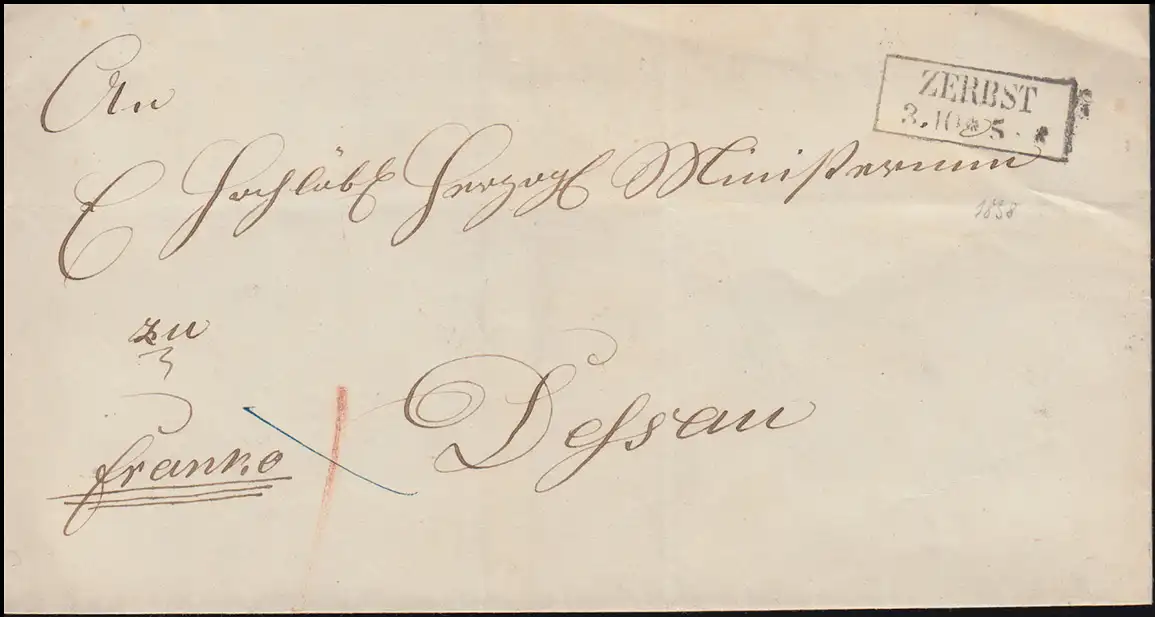 ZERBST
3. 10 * 5
An
E Hochlöbl Herzogl Ministerium
1858
zu
Dessau
franko